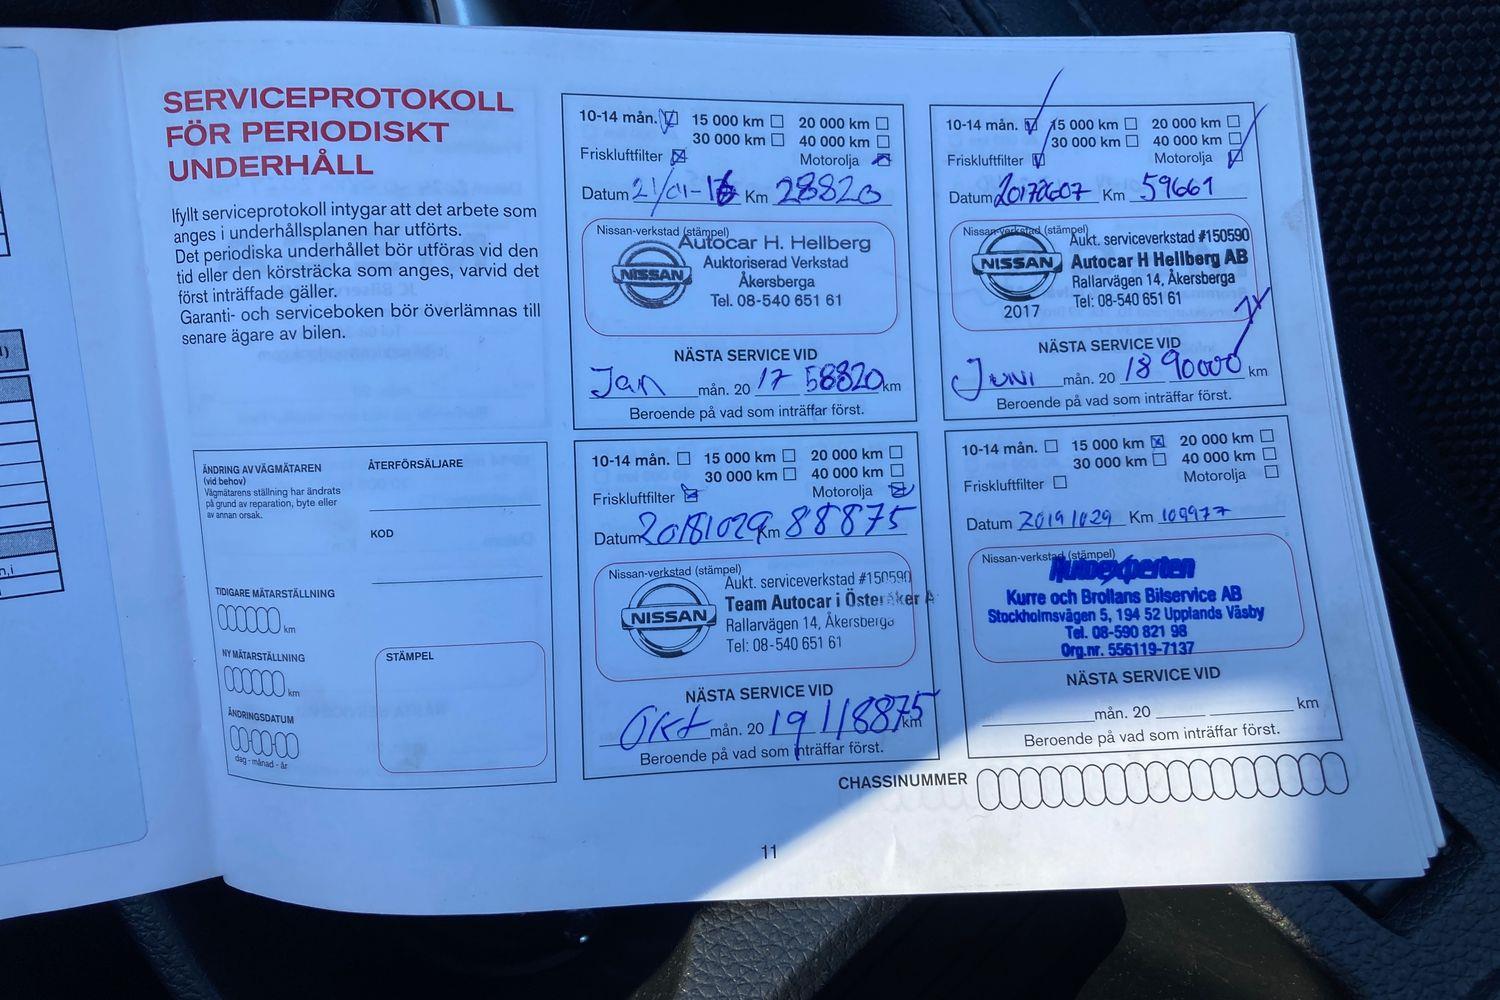 SERVICEPROTOKOLL
FÖR PERIODISKT
UNDERHÅLL
Ifyllt serviceprotokoll intygar att det arbete som
anges i underhållsplanen har utförts.
Det periodiska underhållet bör utföras vid den
tid eller den körsträcka som anges, varvid det
först inträffade gäller.
Garanti- och serviceboken bör överlämnas till
senare ägare av bilen.
10-14 mån. 15 000 km 20 000 km
30 000 km 40 000 km
Friskluftfilter Motorolja
Datum 21/01-16 Km 28820
Nissan-verkstad (stämpel)
Autocar H. Hellberg
NISSAN
Auktoriserad Verkstad
Åkersberga
Tel. 08-540 651 61
NÄSTA SERVICE VID
Jan mån. 20 17 58820 km
Beroende på vad som inträffar först.
10-14 mån. 15 000 km 20 000 km
30 000 km 40 000 km
Friskluftfilter Motorolja
Datum 20170607 Km 59661
Nissan-verkstad (stämpel)
NISSAN
2017
Aukt. serviceverkstad #150590
Autocar H Hellberg AB
Rallarvägen 14, Åkersberga
Tel: 08-540 651 61
NÄSTA SERVICE VID
Juni mån. 20 18 90000 km
Beroende på vad som inträffar först.
ÄNDRING AV VÄGMÄTAREN
(vid behov)
Vägmätarens ställning har ändrats
på grund av reparation, byte eller
av annan orsak.
ÅTERFÖRSÄLJARE
KOD
TIDIGARE MÄTARSTÄLLNING
km
NY MÄTARSTÄLLNING
km
ÄNDRINGSDATUM
dag - månad - år
STÄMPEL
10-14 mån. 15 000 km 20 000 km
30 000 km 40 000 km
Friskluftfilter Motorolja
Datum 20181029 Km 88875
Nissan-verkstad (stämpel)
NISSAN
Aukt. serviceverkstad #150590
Team Autocar i Österåker A
Rallarvägen 14, Åkersberga
Tel: 08-540 651 61
NÄSTA SERVICE VID
Okt mån. 20 19 118875 km
Beroende på vad som inträffar först.
10-14 mån. 15 000 km 20 000 km
30 000 km 40 000 km
Friskluftfilter Motorolja
Datum 20191029 Km 109977
Nissan-verkstad (stämpel)
Autoexperten
Kurre och Brollans Bilservice AB
Stockholmsvägen 5, 194 52 Upplands Väsby
Tel. 08-590 821 98
Org.nr. 556119-7137
NÄSTA SERVICE VID
mån. 20 km
Beroende på vad som inträffar först.
CHASSINUMMER
11